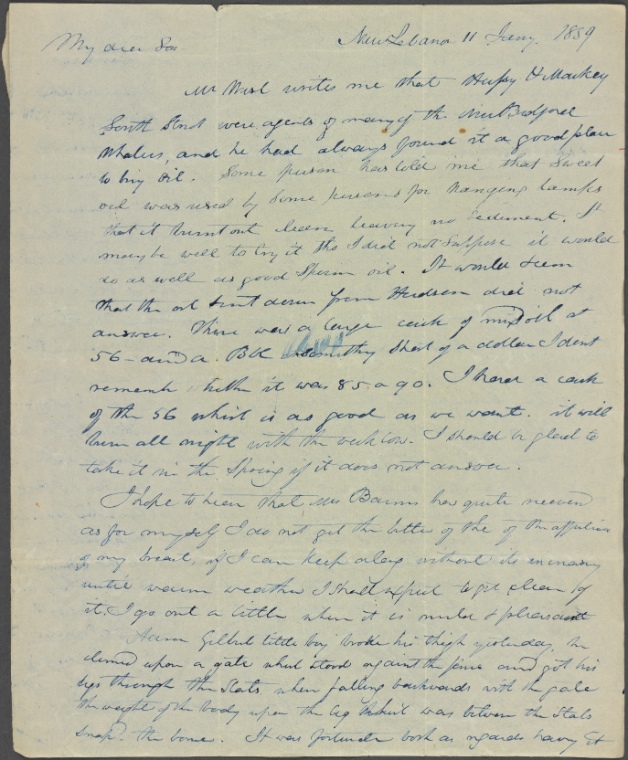 My dear Son New Lebanon 11 Jany. 1839
Mr writes me that Hussey & Mackey
South Street were agents of many of the New Bedford
Whalers, and he had always found it a good plan
to buy oil. Some person has told me that Sweet
oil was used by some persons for hanging lamps
that it burnt out clean leaving no sediment. It
may be well to try it tho I did not suppose it would
do as well as good Sperm oil. It would seem
that the oil sent down from Hudson did not
answer. There was a large cask of mixd oil at
56 - and a Bbl something short of a dollar I dont
rememb whether it was 85 a 90. I have a cask
of the 56 which is as good as we want. it will
burn all night with the wick low. I should be glad to
take it in the Spring if it does not answer.
I hope to hear that Mrs has quite recoverd
as for myself I do not get the better of the of the affliction
of my breast, if I can keep along without its increasing
until warm weather I shall expect to get clear of
it. I go out a little when it is mild & pleasant
Gilbert little boy broke his thigh yesterday, he
climed upon a gate which stood against the fence and got his
legs through the Slats when falling backwards with the gate
the weight of the body upon the leg which was between the Slats
snapd the bone. It was fortunate both as regards having it